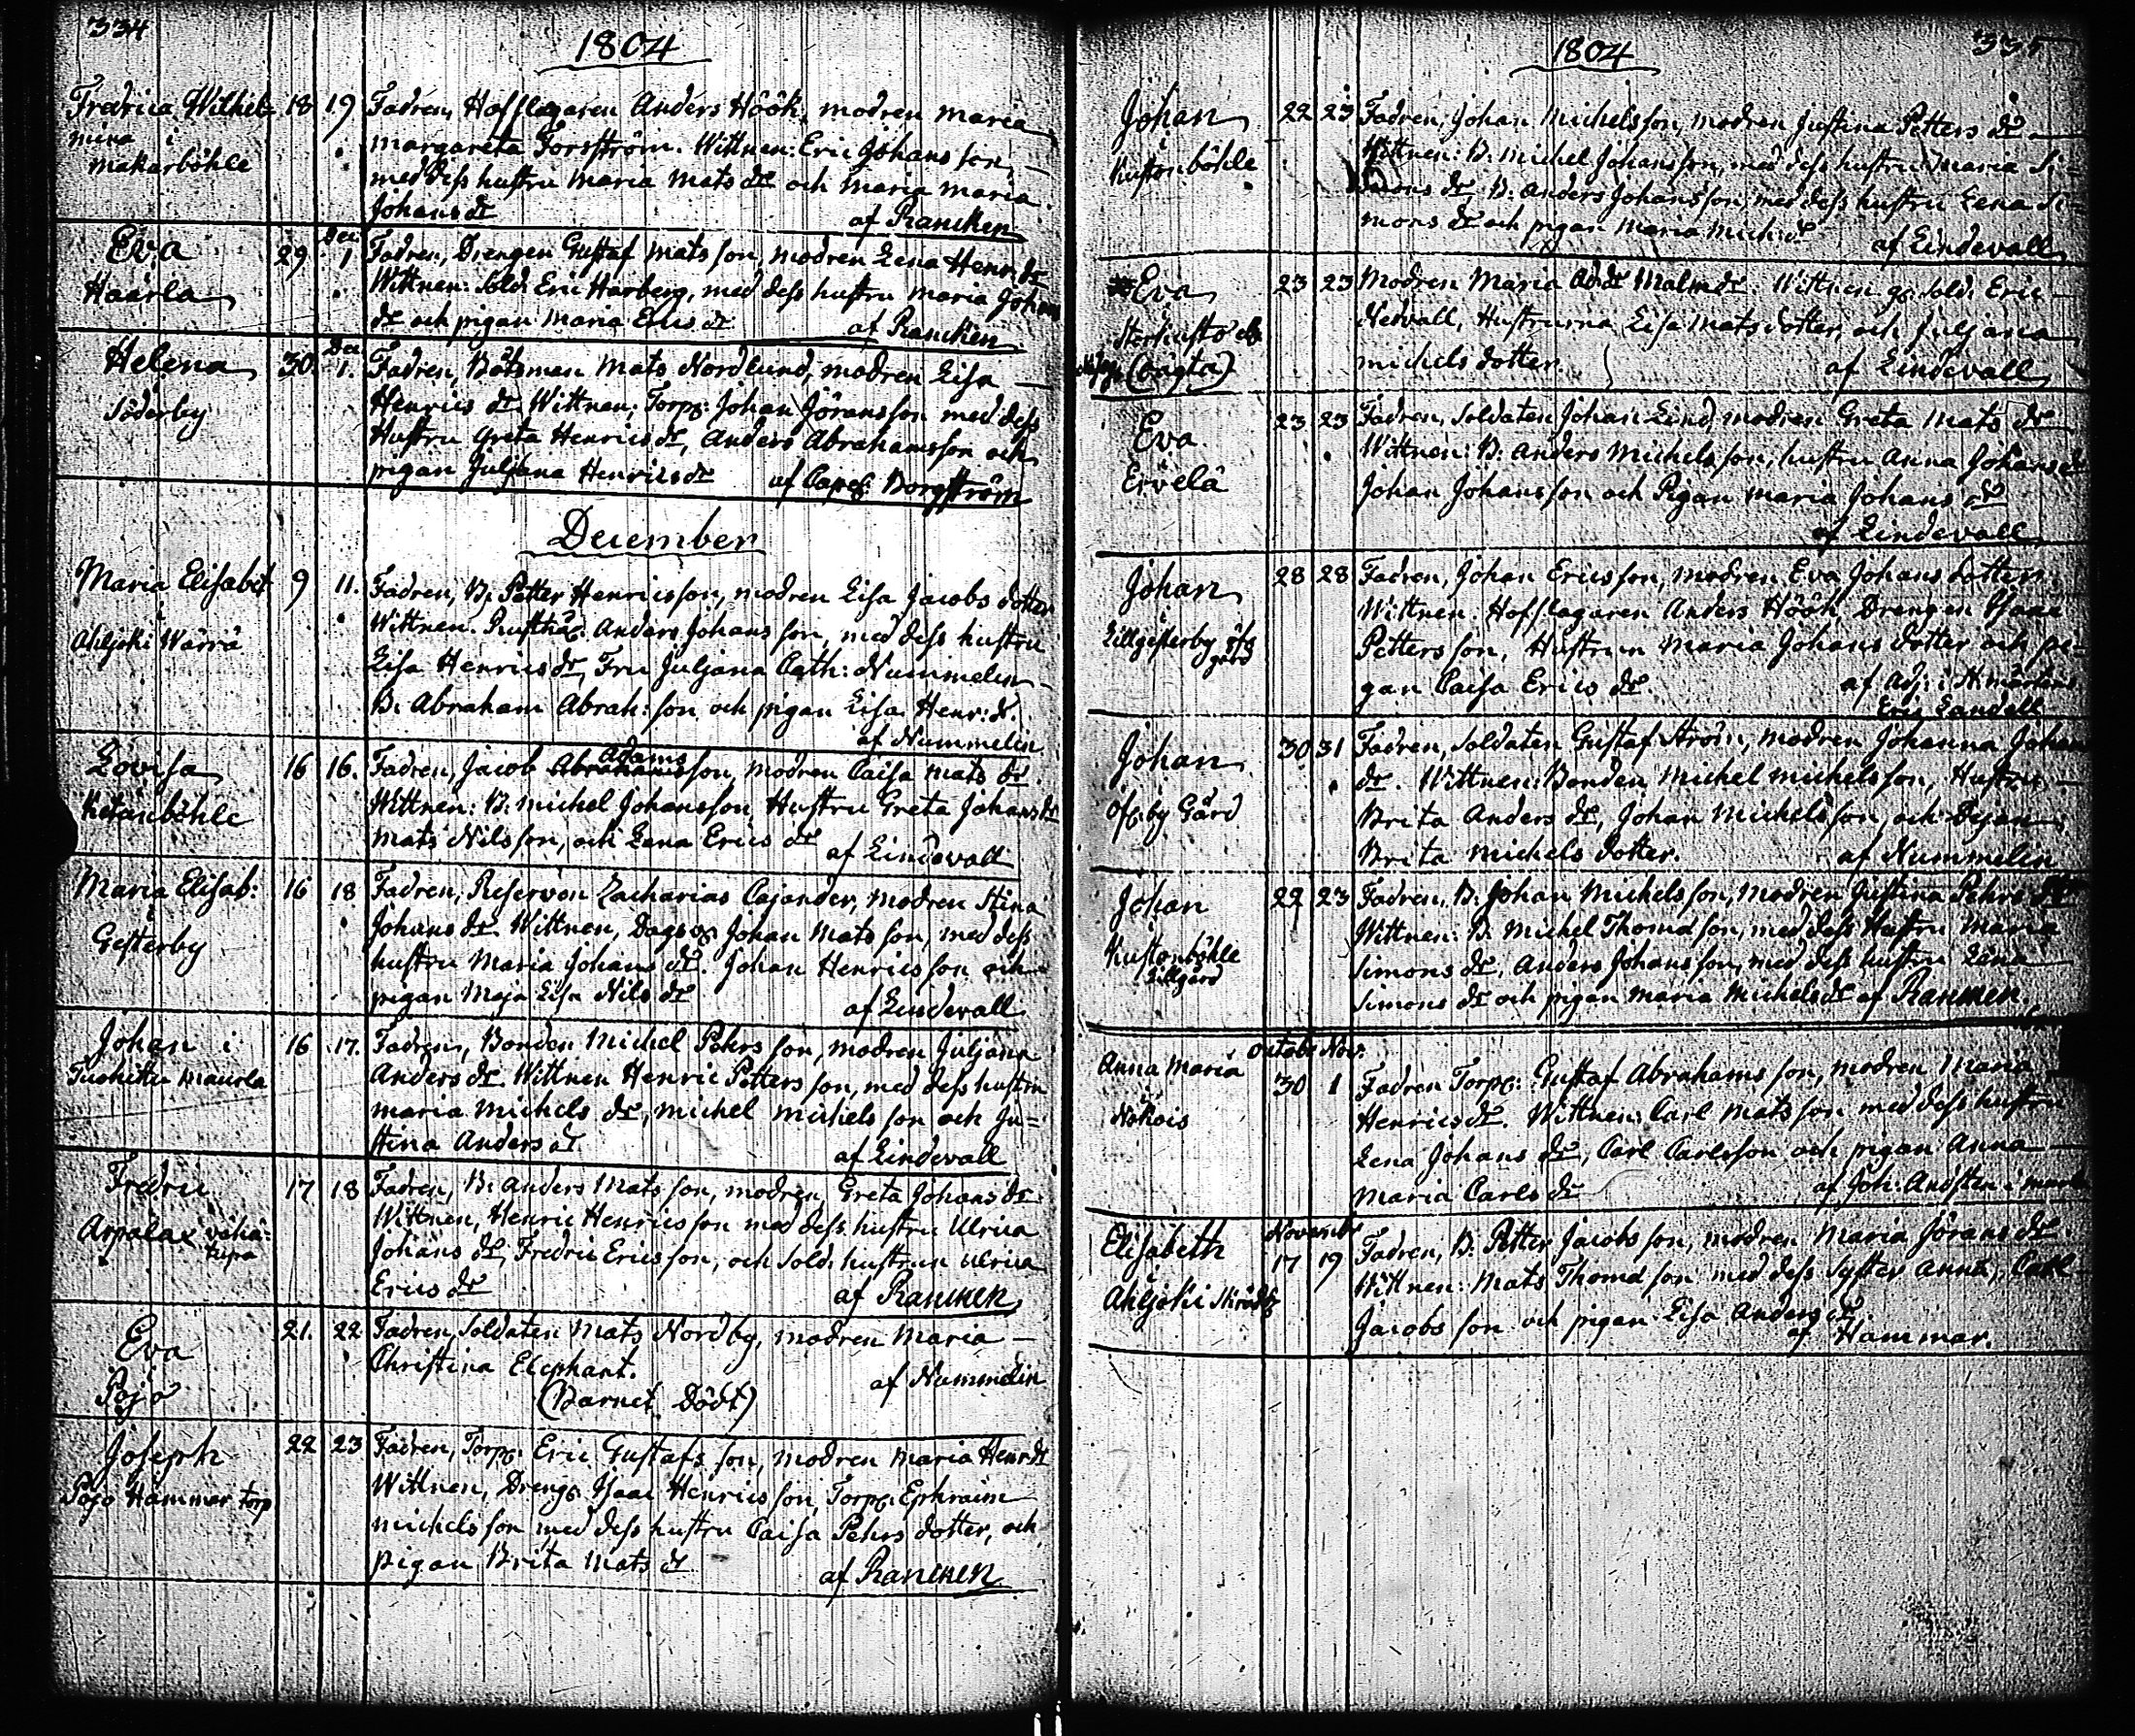 334
1804
Fredrica Wilhel- 18 19 Fadren, Hofslagaren Anders Höök, modren Maria
mina i Margareta Forsström. Wittnen: Eric Johansson,
Makarböhle med dess hustru Maria Mats dr och Maria Maria
Johans dr af Rancken
Dec.
Eva 29 1 Fadren, Drengen Gustaf Matsson, modren Lena Henr. dr
Haarla Wittnen: Sold. Eric Harberg, med dess hustru Maria Johans
dr och pigan Maria Erics dr af Rancken
Dec.
Helena 30. 1. Fadren, Båtsman Mats Nordlund, modren Lisa
Söderby Henrics dr Wittnen: Torp. Johan Jöransson med dess
Hustru Greta Henrics dr, Anders Abrahamsson och
pigan Juljana Henrics dr af Capel. Borgström
December
Maria Elisabet 9 11. Fadren, B. Petter Henricsson, modren Lisa Jacobs dotter
i Wittnen. Rusthål. Anders Johansson, med dess hustru
Ahljoki Wärrä Lisa Henrics dr, Fru Juljana Cath: Nummelin
B. Abraham Abrah:son och pigan Lisa Henr: d.
af Nummelin
Lovisa 16 16. Fadren, Jacob Abrahamsson Adams, modren Caisa Mats dr.
Ketarböhle Wittnen: B. Michel Johansson, Hustru Greta Johans dr
Mats Nilsson, och Lena Erics dr af Lindevall
Maria Elisab: 16 18 Fadren, Reserven Zacharias Cajander, modren Stina
i Johans dr. Wittnen, Dagsv. Johan Matsson, med dess
Gesterby hustru Maria Johans dr. Johan Henricsson och
pigan Maja Lisa Nils dr af Lindevall
Johan i 16 17. Fadren, Bonden Michel Pehrsson, modren Juljana
Tuohittu Maurla Anders dr. Wittnen Henric Pettersson, med dess hustru
Maria Michels dr, Michel Michelsson och Ju-
stina Anders dr af Lindevall
Fredric 17 18 Fadren, B. Anders Matsson, modren Greta Johans dr.
Arpalax vähä- Wittnen, Henric Henricsson med dess hustru Ulrica
tupa Johans dr, Fredric Ericsson, och Sold. hustrun Ulrica
Erics dr af Rancken
Eva 21. 22 Fadren, Soldaten Mats Nordby, modren Maria
Pojo Christina Elephant. af Nummelin
(Barnet Dödt)
Joseph 22 23 Fadren, Torp. Eric Gustafsson, modren Maria Henr dr
Pojo Hammar torp Wittnen, Dreng. Isaac Henricsson, Torp. Ephraim
Michelsson med dess hustru Caisa Pehrs dotter, och
pigan Brita Mats dr af Rancken
1804
335
Johan 22 23 Fadren, Johan Michelsson, modren Justina Petters dr
i Wittnen: B. Michel Johansson, med dess hustru Maria Si-
Kustonböhle mons dr, B. Anders Johansson, med dess hustru Lena Si-
mons dr och pigan Maria Mich: dr af Lindevall
Eva 23 23 Modren Maria Malm dr. Wittnen g. Sold. Eric
Nedvall, Hustrurna Lisa Mats dotter, och Juljana
(oägta) Michels dotter. af Lindevall
Eva 23 23 Fadren, Soldaten Johan Lind, modren Greta Mats dr
Ervelä Wittnen: B. Anders Michelsson, hustru Anna Johans dr
Johan Johansson och Pigan Maria Johans dr
af Lindevall
Johan 28 28 Fadren, Johan Ericsson, modren Eva Johans dotter
i Wittnen. Hofslagaren Anders Höök, Drengen Isaac
Lillgesterby öfv Pettersson, Hustrun Maria Johans dotter och pi-
gård gan Caisa Erics dr. af Adj: i St. Mårtens
Eric Landell
Johan 30 31 Fadren, Soldaten Gustaf Ström, modren Johanna Johans
dr. Wittnen: Bonden Michel Michelsson, Hustru
Öf.by Gård Brita Anders dr, Johan Michelsson och Pijan
Brita Michels dotter. af Nummelin
Johan 22 23 Fadren, B. Johan Michelsson, modren Justina Pehrs dr
Kustonböhle Wittnen: B. Michel Thomasson, med dess Hustru Maria
Lillgård Simons dr, Anders Johansson, med dess hustru Lena
Simons dr och pigan Maria Michels dr af Rancken.
Octob. Nov.
Anna Maria 30 1 Fadren Torp: Gustaf Abrahamsson, modren Maria
i Henrics dr. Wittnen: Carl Matsson med dess hustru
Nokois Lena Johans dr, Carl Carlsson och pigan Anna
Maria Carls dr af Joh. Andsten i
November
Elisabeth 17 19 Fadren, B. Petter Jacobsson, modren Maria Jörans dr
i Wittnen: Mats Thomasson med dess Syster Anna, Carl
Ahljoki Jacobsson och pigan Lisa Anders dr.
af Hammar.